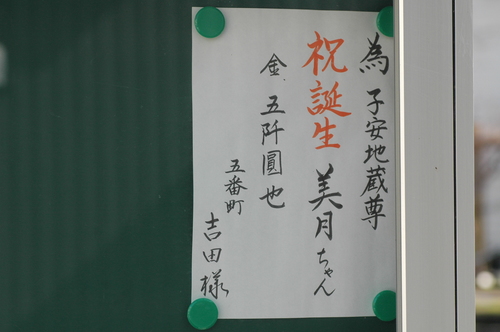 為 子安地蔵尊
祝誕生 美月ちゃん
金 五阡圓也
五番町
吉田様